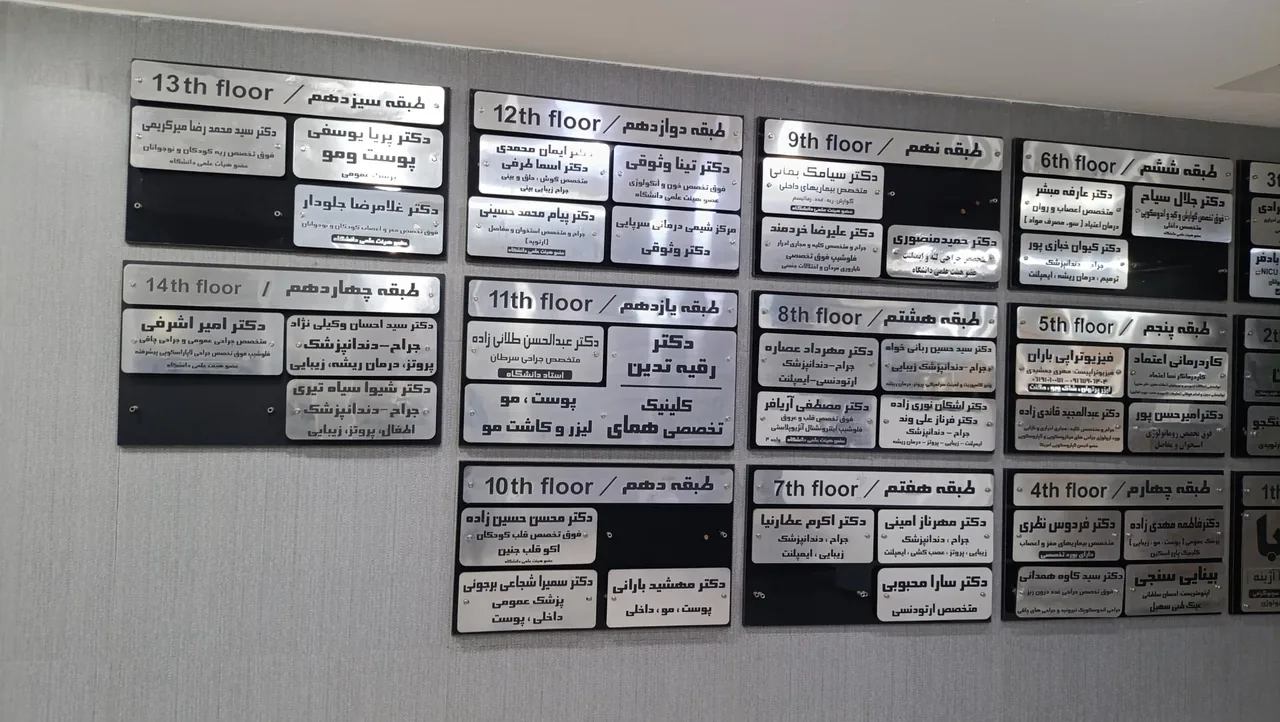 13th floor / طبقه سیزدهم
دکتر پریا یوسفی
پوست ومو
پزشک عمومی
دکتر سید محمد رضا میرکریمی
فوق تخصص ریه کودکان و نوجوانان
عضو هیئت علمی دانشگاه
دکتر غلامرضا جلودار
فوق تخصص مغز و اعصاب کودکان و نوجوانان
عضو هیئت علمی دانشگاه
14th floor / طبقه چهاردهم
دکتر سید احسان وکیلی نژاد
جراح-دندانپزشک
پروتز، درمان ریشه، زیبایی
دکتر امیر اشرفی
متخصص جراحی عمومی و جراحی چاقی
فلوشیپ فوق تخصص جراحی لاپاراسکوپی پیشرفته
عضو هیئت علمی دانشگاه
دکتر شیوا سیاه تیری
جراح-دندانپزشک
اطفال، پروتز، زیبایی
12th floor / طبقه دوازدهم
دکتر تینا وثوقی
فوق تخصص خون و آنکولوژی
عضو هیئت علمی دانشگاه
دکتر ایمان محمدی
دکتر اسما طرفی
متخصص گوش، حلق و بینی
جراح زیبایی بینی
مرکز شیمی درمانی سرپایی
دکتر وثوقی
دکتر پیام محمد حسینی
جراح و متخصص استخوان و مفاصل
[ارتوپد]
عضو هیئت علمی دانشگاه
11th floor / طبقه یازدهم
دکتر
رقیه تدین
کلینیک
تخصصی همای
دکتر عبدالحسن طلائی زاده
متخصص جراحی سرطان
استاد دانشگاه
پوست ، مو
لیزر و کاشت مو
10th floor / طبقه دهم
دکتر محسن حسین زاده
فوق تخصص قلب کودکان
اکو قلب جنین
عضو هیئت علمی دانشگاه
دکتر مهشید بارانی
پوست ، مو ، داخلی
دکتر سمیرا شجاعی برجوئی
پزشک عمومی
داخلی ، پوست
9th floor / طبقه نهم
دکتر سیامک
متخصص بیماریهای داخلی
گوارش.ریه.غدد.رماتیسم
عضو هیئت علمی دانشگاه
دکتر حمیدمنصوری
متخصص جراحی لثه و ایمپلنت
عضو هیئت علمی دانشگاه
دکتر علیرضا خردمند
جراح و متخصص کلیه و مجاری ادرار
فلوشیپ فوق تخصصی
ناباروری مردان و اختلالات جنسی
8th floor / طبقه هشتم
دکتر سید حسین ربانی خواه
جراح-دندانپزشک زیبایی
دکتر مهرداد عصاره
جراح-دندانپزشک
ارتودنسی-ایمپلنت
دکتر اشکان نوری زاده
دکتر فرناز علی وند
جراح - دندانپزشک
ایمپلنت - زیبایی - پروتز - درمان ریشه
دکتر مصطفی آریافر
فوق تخصص قلب و عروق
فلوشیپ اینترونشنال آنژیوپلاستی
عضو هیئت علمی دانشگاه
واحد ۴
7th floor / طبقه هفتم
دکتر مهرناز امینی
جراح ، دندانپزشک
زیبایی ، پروتز ، عصب کشی ، ایمپلنت
دکتر اکرم عطارنیا
جراح ، دندانپزشک
زیبایی ، ایمپلنت
دکتر سارا محبوبی
متخصص ارتودنسی
6th floor / طبقه ششم
دکتر جلال سیاح
فوق تخصص گوارش و کبد و آندوسکوپی
متخصص داخلی
عضو هیئت علمی دانشگاه
دکتر عارفه مبشر
متخصص اعصاب و روان
درمان اعتیاد [ سوء مصرف مواد ]
دکتر کیوان خبازی پور
جراح - دندانپزشک
ترمیم ، درمان ریشه ، ایمپلنت
5th floor / طبقه پنجم
کاردرمانی اعتماد
کاردرمانگر: سبا اعتماد
فیزیوتراپی باران
فیزیوتراپیست: مهری جمشیدی
دکتر امیرحسن پور
فوق تخصص روماتولوژی
استخوان و مفاصل
دکتر عبدالمجید قائدی زاده
4th floor / طبقه چهارم
دکترفاطمه مهدی زاده
پزشک عمومی [ پوست ، مو ، زیبایی ]
دکتر فردوس نظری
متخصص بیماریهای مغز و اعصاب
دارای بورد تخصصی
بینایی سنجی
عینک طبی سهیل
دکتر سید کاوه همدانی
فوق تخصص جراحی غدد درون ریز
NICU